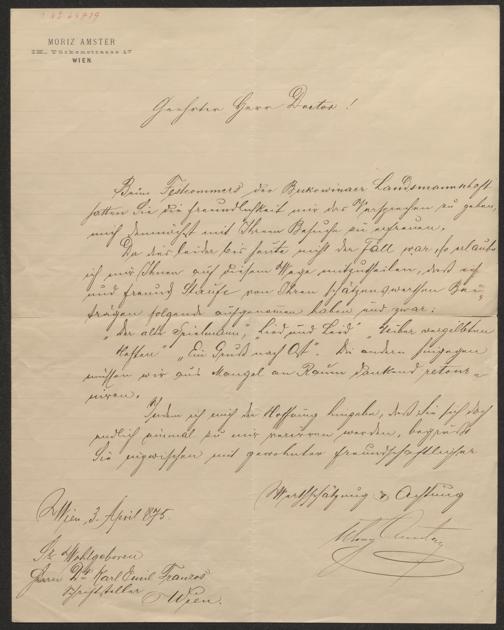 MORIZ AMSTER
IX., Türkenstrasse 17
WIEN
Geehrter Herr Doctor!
Beim Festcommers der Bukowinaer Landsmannschaft
hatten Sie die Freundlichkeit mir das Versprechen zu geben,
mich demnächst mit Ihrem Besuche zu erfreuen.
Da dies leider bis heute nicht der Fall war, so erlaube
ich mir Ihnen auf diesem Wege mitzutheilen, daß ich
und Freund Staufe von Ihren schätzenswerthen Bei-
trägen folgende aufgenommen haben und zwar:
"Der alte Spielmann", "Lied und Leid"
Heften" "Ein Gruß nach Ost". Die andern hingegen
müssen wir aus Mangel an Raum dankend retour-
niren.
Indem ich mich der Hoffnung hingebe, daß Sie sich doch
endlich einmal zu mir verirren werden, begrüßt
Sie inzwischen mit gewohnter freundschaftlicher
Werthschätzung & Achtung
Wien, 3. April 1875.
Sr. Wohlgeboren
Herrn Dr. Karl Emil Franzos
Schriftsteller
Wien.